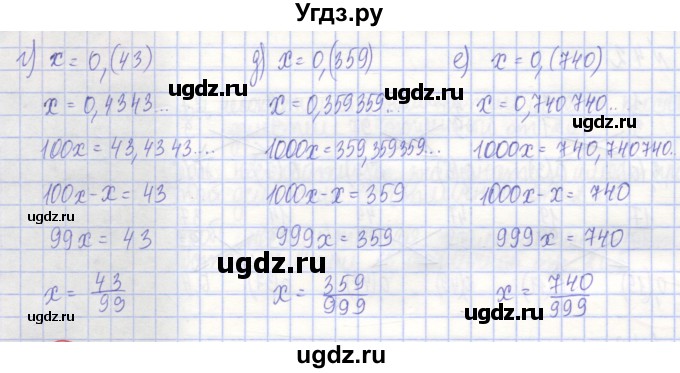 Угдз.ру
г) x = 0,(43)
x = 0,4343...
100x = 43,4343....
100x - x = 43
99x = 43
x = 43/99
д) x = 0,(359)
x = 0,359359...
1000x = 359,359359...
1000x - x = 359
999x = 359
x = 359/999
е) x = 0,(740)
x = 0,740740..
1000x = 740,740740..
1000x - x = 740
999x = 740
x = 740/999
ugdz.ru
ugdz.ru
ugdz.ru
ugdz.ru
ugdz.ru
ugdz.ru
ugdz.ru
ugdz.ru
ugdz.ru
ugdz.ru
ugdz.ru